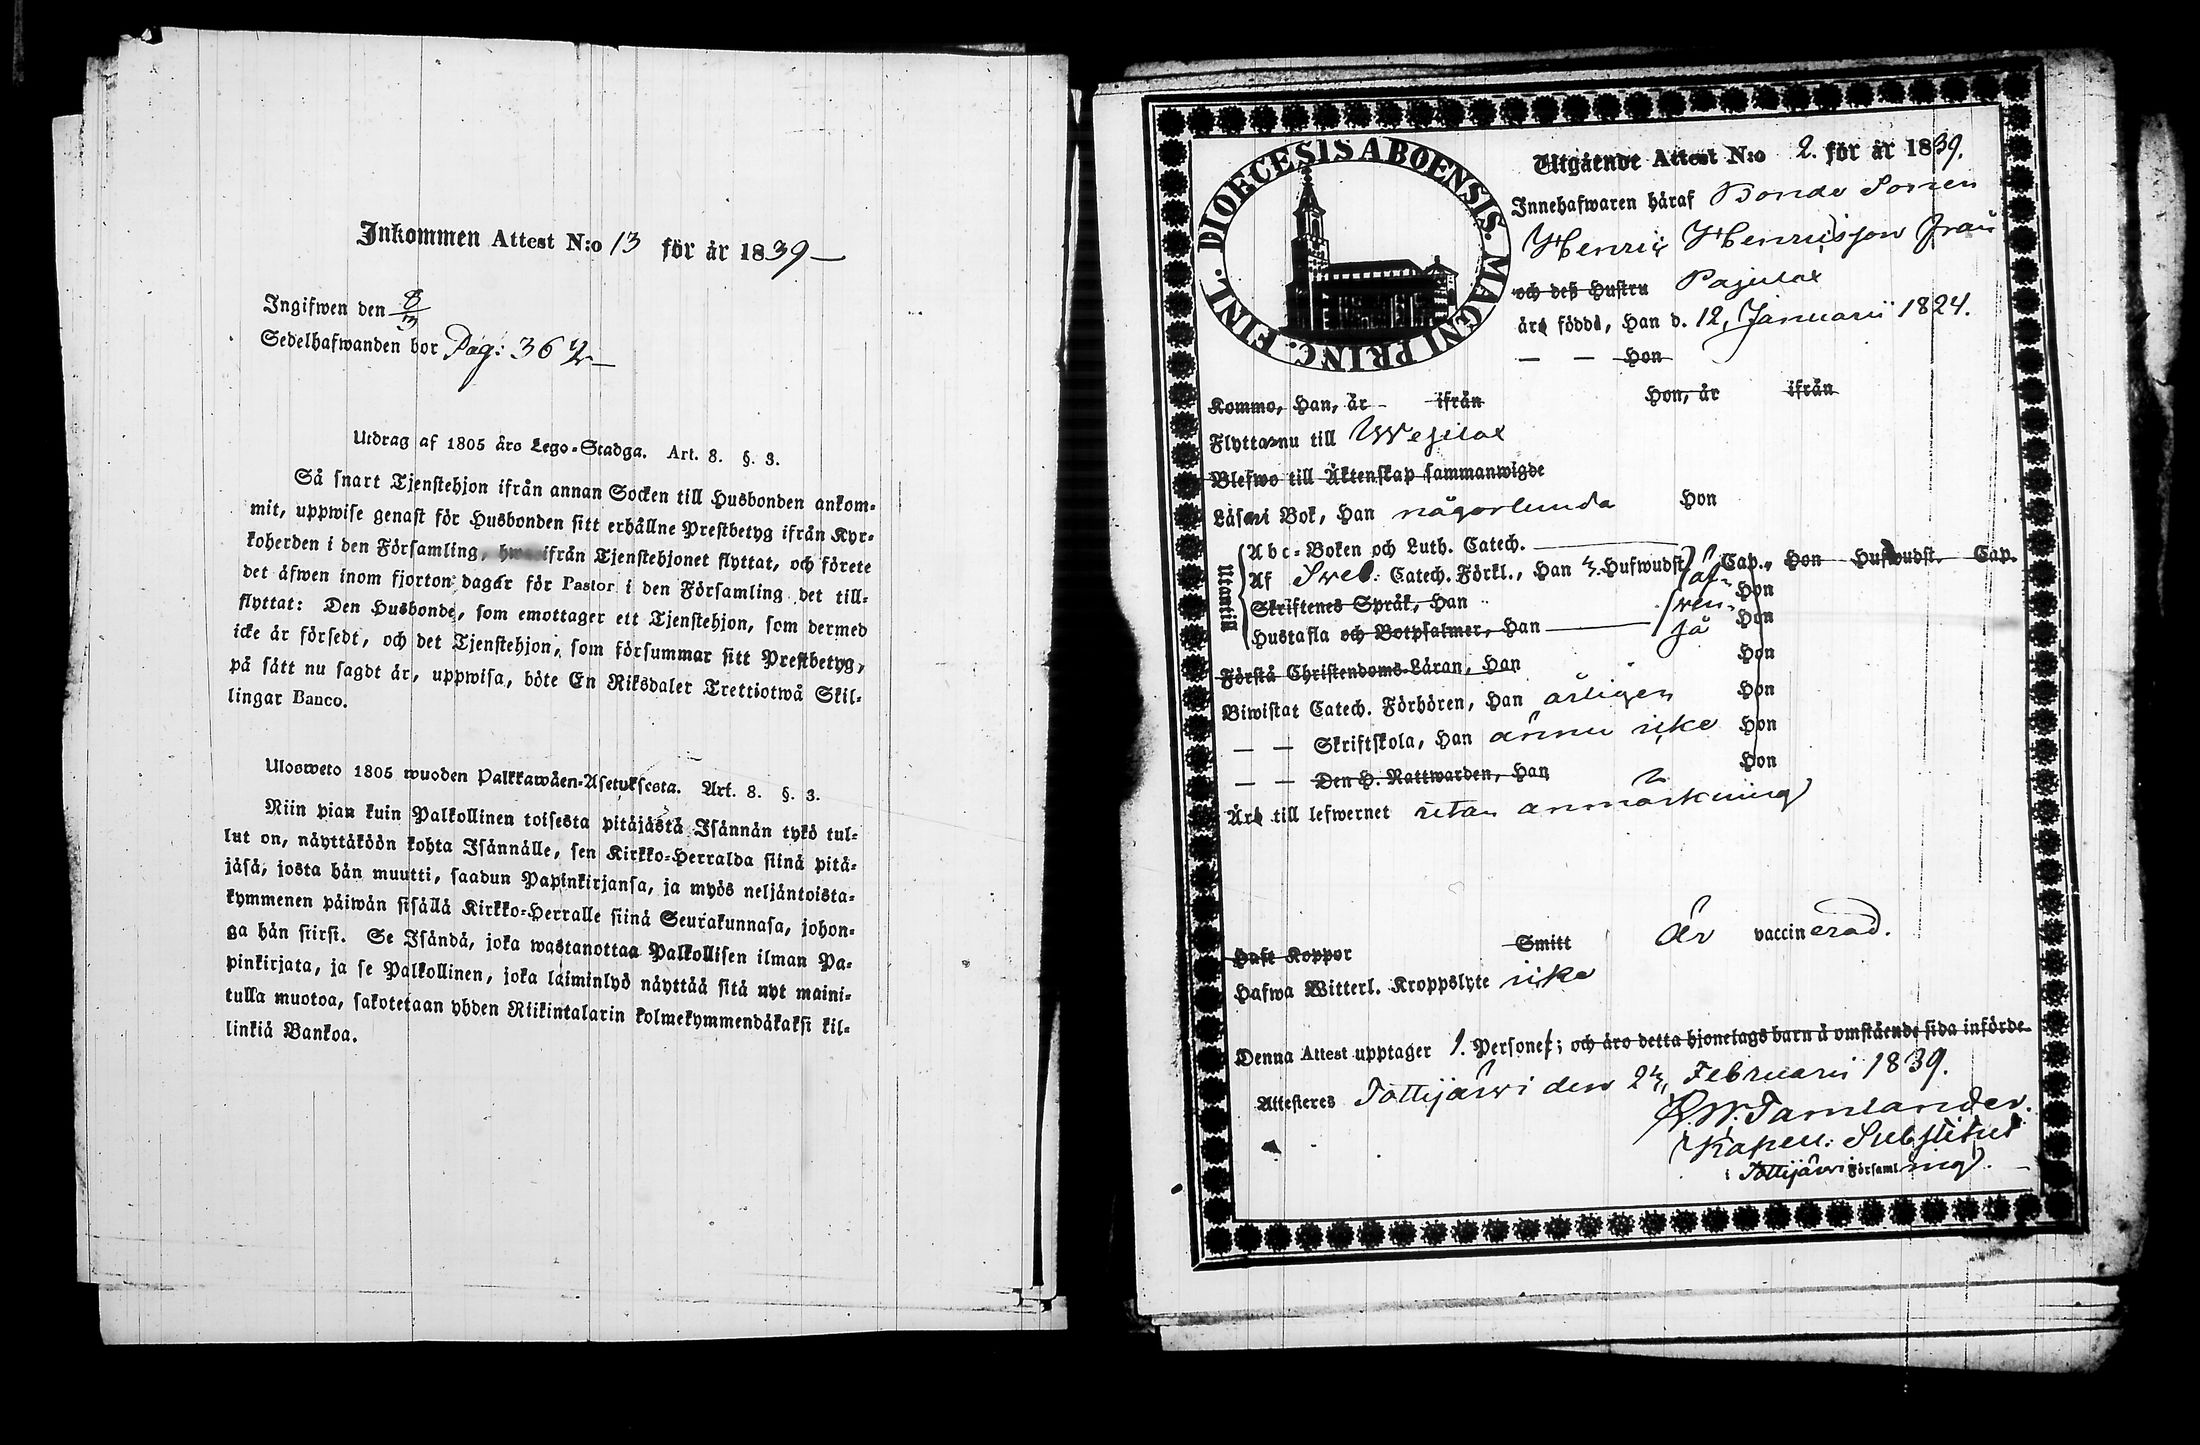 Inkommen Attest N:o 13 för år 1839 —
Ingifwen den 8/3
Sedelhafwanden bor Pag: 362 —
Utdrag af 1805 års Lego-Stadga. Art. 8. §. 3.
Så snart Tjenstehjon ifrån annan Socken till Husbonden ankom-
mit, uppwise genast för Husbonden sitt erhållne Prestbetyg ifrån Kyr-
koherden i den Församling, ifrån Tjenstehjonet flyttat, och förete
det äfwen inom fjorton dagar för Pastor i den Församling det till-
flyttat: Den Husbonde, som emottager ett Tjenstehjon, som dermed
icke är försedt, och det Tjenstehjon, som försummar sitt Prestbetyg,
på sätt nu sagdt är, uppwisa, böte En Riksdaler Trettiotwå Skil-
lingar Banco.
Ulosweto 1805 wuoden Palkkawäen-Asetuksesta. Art. 8. §. 3.
Niin pian kuin Palkollinen toisesta pitäjästä Isännän tykö tul-
lut on, näyttäköön kohta Isännälle, sen Kirkko-Herralda siinä pitä-
jäsä, josta hän muutti, saadun Papinkirjansa, ja myös neljäntoista-
kymmenen päiwän sisällä Kirkko-Herralle siinä Seurakunnasa, johon-
ga hän siirsi. Se Isändä, joka wastanottaa Palkollisen ilman Pa-
pinkirjata, ja se Palkollinen, joka laiminlyö näyttää sitä nyt maini-
tulla muotoa, sakotetaan yhden Riikintalarin kolmekymmendäkaksi kil-
linkiä Bankoa.
DIOECESIS ABOENSIS. MAGNI PRINC. FINL.
Utgående Attest N:o 2. för år 1839.
Innehafwaren häraf Bonde Sonen
Henric Henricsson från
och deß Hustru Pajulax
äro födde, Han d. 12, Januarii 1824.
— — Hon
Kommo, Han, år - ifrån Hon, år ifrån
Flytta nu till Wesilax
Blefwo till Äktenskap sammanwigde
Läsa i Bok, Han någorlunda Hon
Utantill
Abc-Boken och Luth. Catech.
Af Sveb. Catech. Förkl., Han Hufwudst. Cap., Hon Hufwudst. Cap.
Skriftenes Språk, Han Hon
Hustafla och Botpsalmer, Han Hon
Förstå Christendoms-Läran, Han Hon
Biwistat Catech. Förhören, Han årligen Hon
— — Skriftskola, Han ännu icke Hon
— — Den H. Nattwarden, Han Hon
Äro till lefwernet utan anmärkning
Haft Koppor Smitt Är vaccinerad.
Hafwa Witterl. Kroppslyte icke
Denna Attest upptager 1. Personer; och äro detta hjonelags barn å omstående sida införde.
Attesteres Tottijärwi den Februarii 1839.
Tamlander.
Kapell. Substitut
i Tottijärwi Församling.